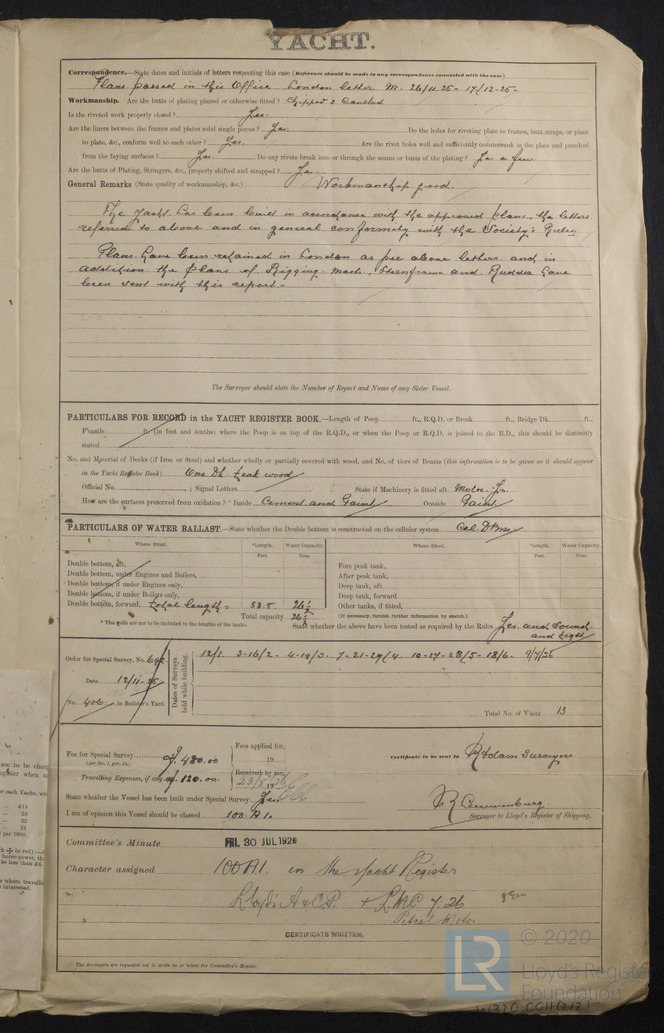 YACHT.
Correspondence.—State dates and initials of letters respecting this case (Reference should be made to any correspondence connected with the case).
Plans passed in this Office London letter M. 26/11.25 - 17/12-25-
Workmanship. Are the butts of plating planed or otherwise fitted? Chipped & Caulked
Is the riveted work properly closed? Yes.
Are the liners between the frames and plates solid single pieces? Yes. Do the holes for riveting plate to frames, butt straps, or plate
to plate, &c., conform well to each other? Yes. Are the rivet holes well and sufficiently countersunk in the plate and punched
from the faying surfaces? Yes. Do any rivets break into or through the seams or butts of the plating? Yes a few
Are the butts of Plating, Stringers, &c., properly shifted and strapped? Yes.
General Remarks (State quality of workmanship, &c.) Workmanship good.
The Yacht has been built in accordance with the approved plans, the letters
referred to above and in general conformity with the Society's Rules
Plans have been retained in London as per above letters and in
addition the plans of Rigging, Mach, Sternframe and Rudder have
been sent with this report.-
The Surveyor should state the Number of Report and Name of any Sister Vessel.
PARTICULARS FOR RECORD in the YACHT REGISTER BOOK.—Length of Poop ft., R.Q.D. or Break ft., Bridge Dk. ft.,
F'castle ft. (in feet and tenths) where the Poop is on top of the R.Q.D., or when the Poop or R.Q.D. is joined to the B.D., this should be distinctly
stated
No. and Material of Decks (if Iron or Steel) and whether wholly or partially covered with wood, and No. of tiers of Beams (this information is to be given as it should appear
in the Yacht Register Book) One Dk teak wood
Official No. ; Signal Letters State if Machinery is fitted aft Motor. Yes.
How are the surfaces preserved from oxidation? Inside Cement and Paint Outside Paint
PARTICULARS OF WATER BALLAST.—State whether the Double bottom is constructed on the cellular system.
Where fitted. *Length. Water Capacity. Where fitted. *Length. Water Capacity.
Feet. Tons. Feet. Tons.
Double bottom, aft, Fore peak tank,
Double bottom, under Engines and Boilers, After peak tank,
Double bottom, if under Engines only, Deep tank, aft
Double bottom, if under Boilers only, Deep tank, forward
Double bottom, forward, total length = 58.5. 26½ Other tanks, if fitted,
Total capacity 26½ (If necessary, furnish further information by sketch.)
* The wells are not to be included in the lengths of the tanks.
State whether the above have been tested as required by the Rules Yes. and Found
and tight
Order for Special Survey, No. 692
Date 12/11-25
No. 406 in Builder's Yard.
Dates of Surveys held while building.
12/1. 3-16/2 - 4-19/3. 7-21-29/4. 10-27-28/5- 18/6. 9/7/26
Total No. of Visits 13
Fee for Special Survey f. 480.00
(per Sec. 3, par. 15.)
Travelling Expenses, if any f. 120.00
Fees applied for,
19
Received by me,
23/8/26
19
Certificate to be sent to R'dam Surveyors
State whether the Vessel has been built under Special Survey Yes
I am of opinion this Vessel should be classed 100.A1.
Surveyor to Lloyd's Register of Shipping.
Committee's Minute FRI. 30 JUL 1926
Character assigned 100A1. in the Yacht Register
Lloyd's A & C.P. + LMC 7.26
Petrol Motor
CERTIFICATE WRITTEN.
The Surveyors are requested not to write on or below the Committee's Minute.
© 2020
LR
Lloyd's Register
Foundation
W320-0011(2/2)